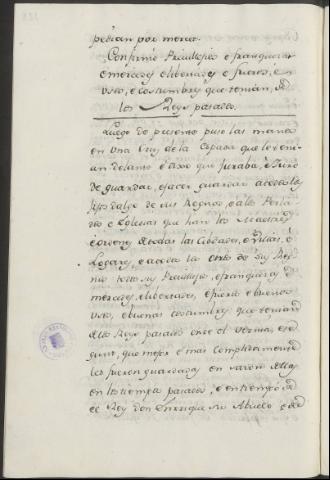 pedian por merced.
Confirmó Previllejos e franquezas
e mercedes e libertades e fueros, e
usos, e costumbres que tenian, de
los Reyes pasados.
Luego de presente puso las manos
en una Cruz de la Espada que le tenian
delante e dixo que juraba, e Juró
de guardar, e facer guardar a todos los
fijos dalgo de sus Regnos, e a los Perlados
e Iglesias que han los Maestres
e ordenes, de todas las Cibdades, e Villas, e
Logares, e a todos los otros de sus Regnos
todos sus Previllejos, e franquezas, e
mercedes, e libertades, e fueros e buenos
usos, e buenas costumbres que tenian
de los Reyes pasados en el
segunt, que mejor e mas complidamente
les fueron guardadas
en los tiempos pasados, e en tiempo de
el Rey don Enrique su Abuelo e de